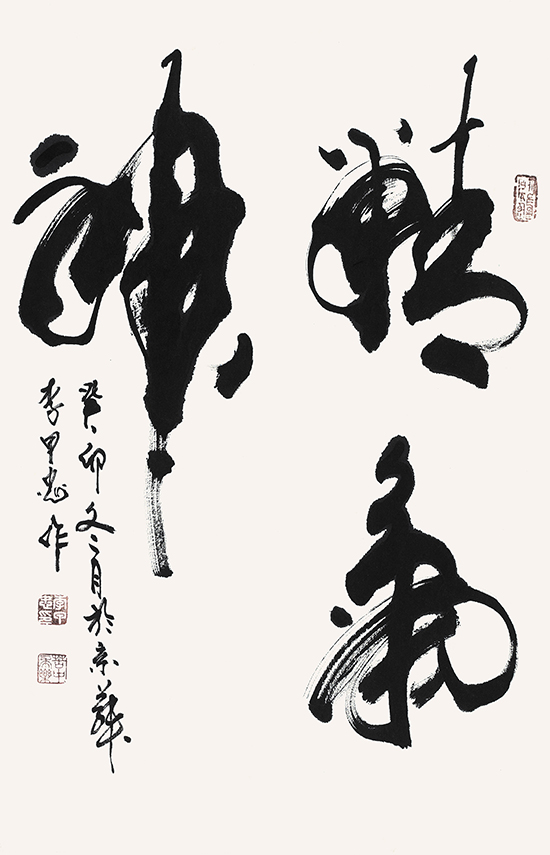 精氣
神
癸卯冬月於京華
李甲忠作